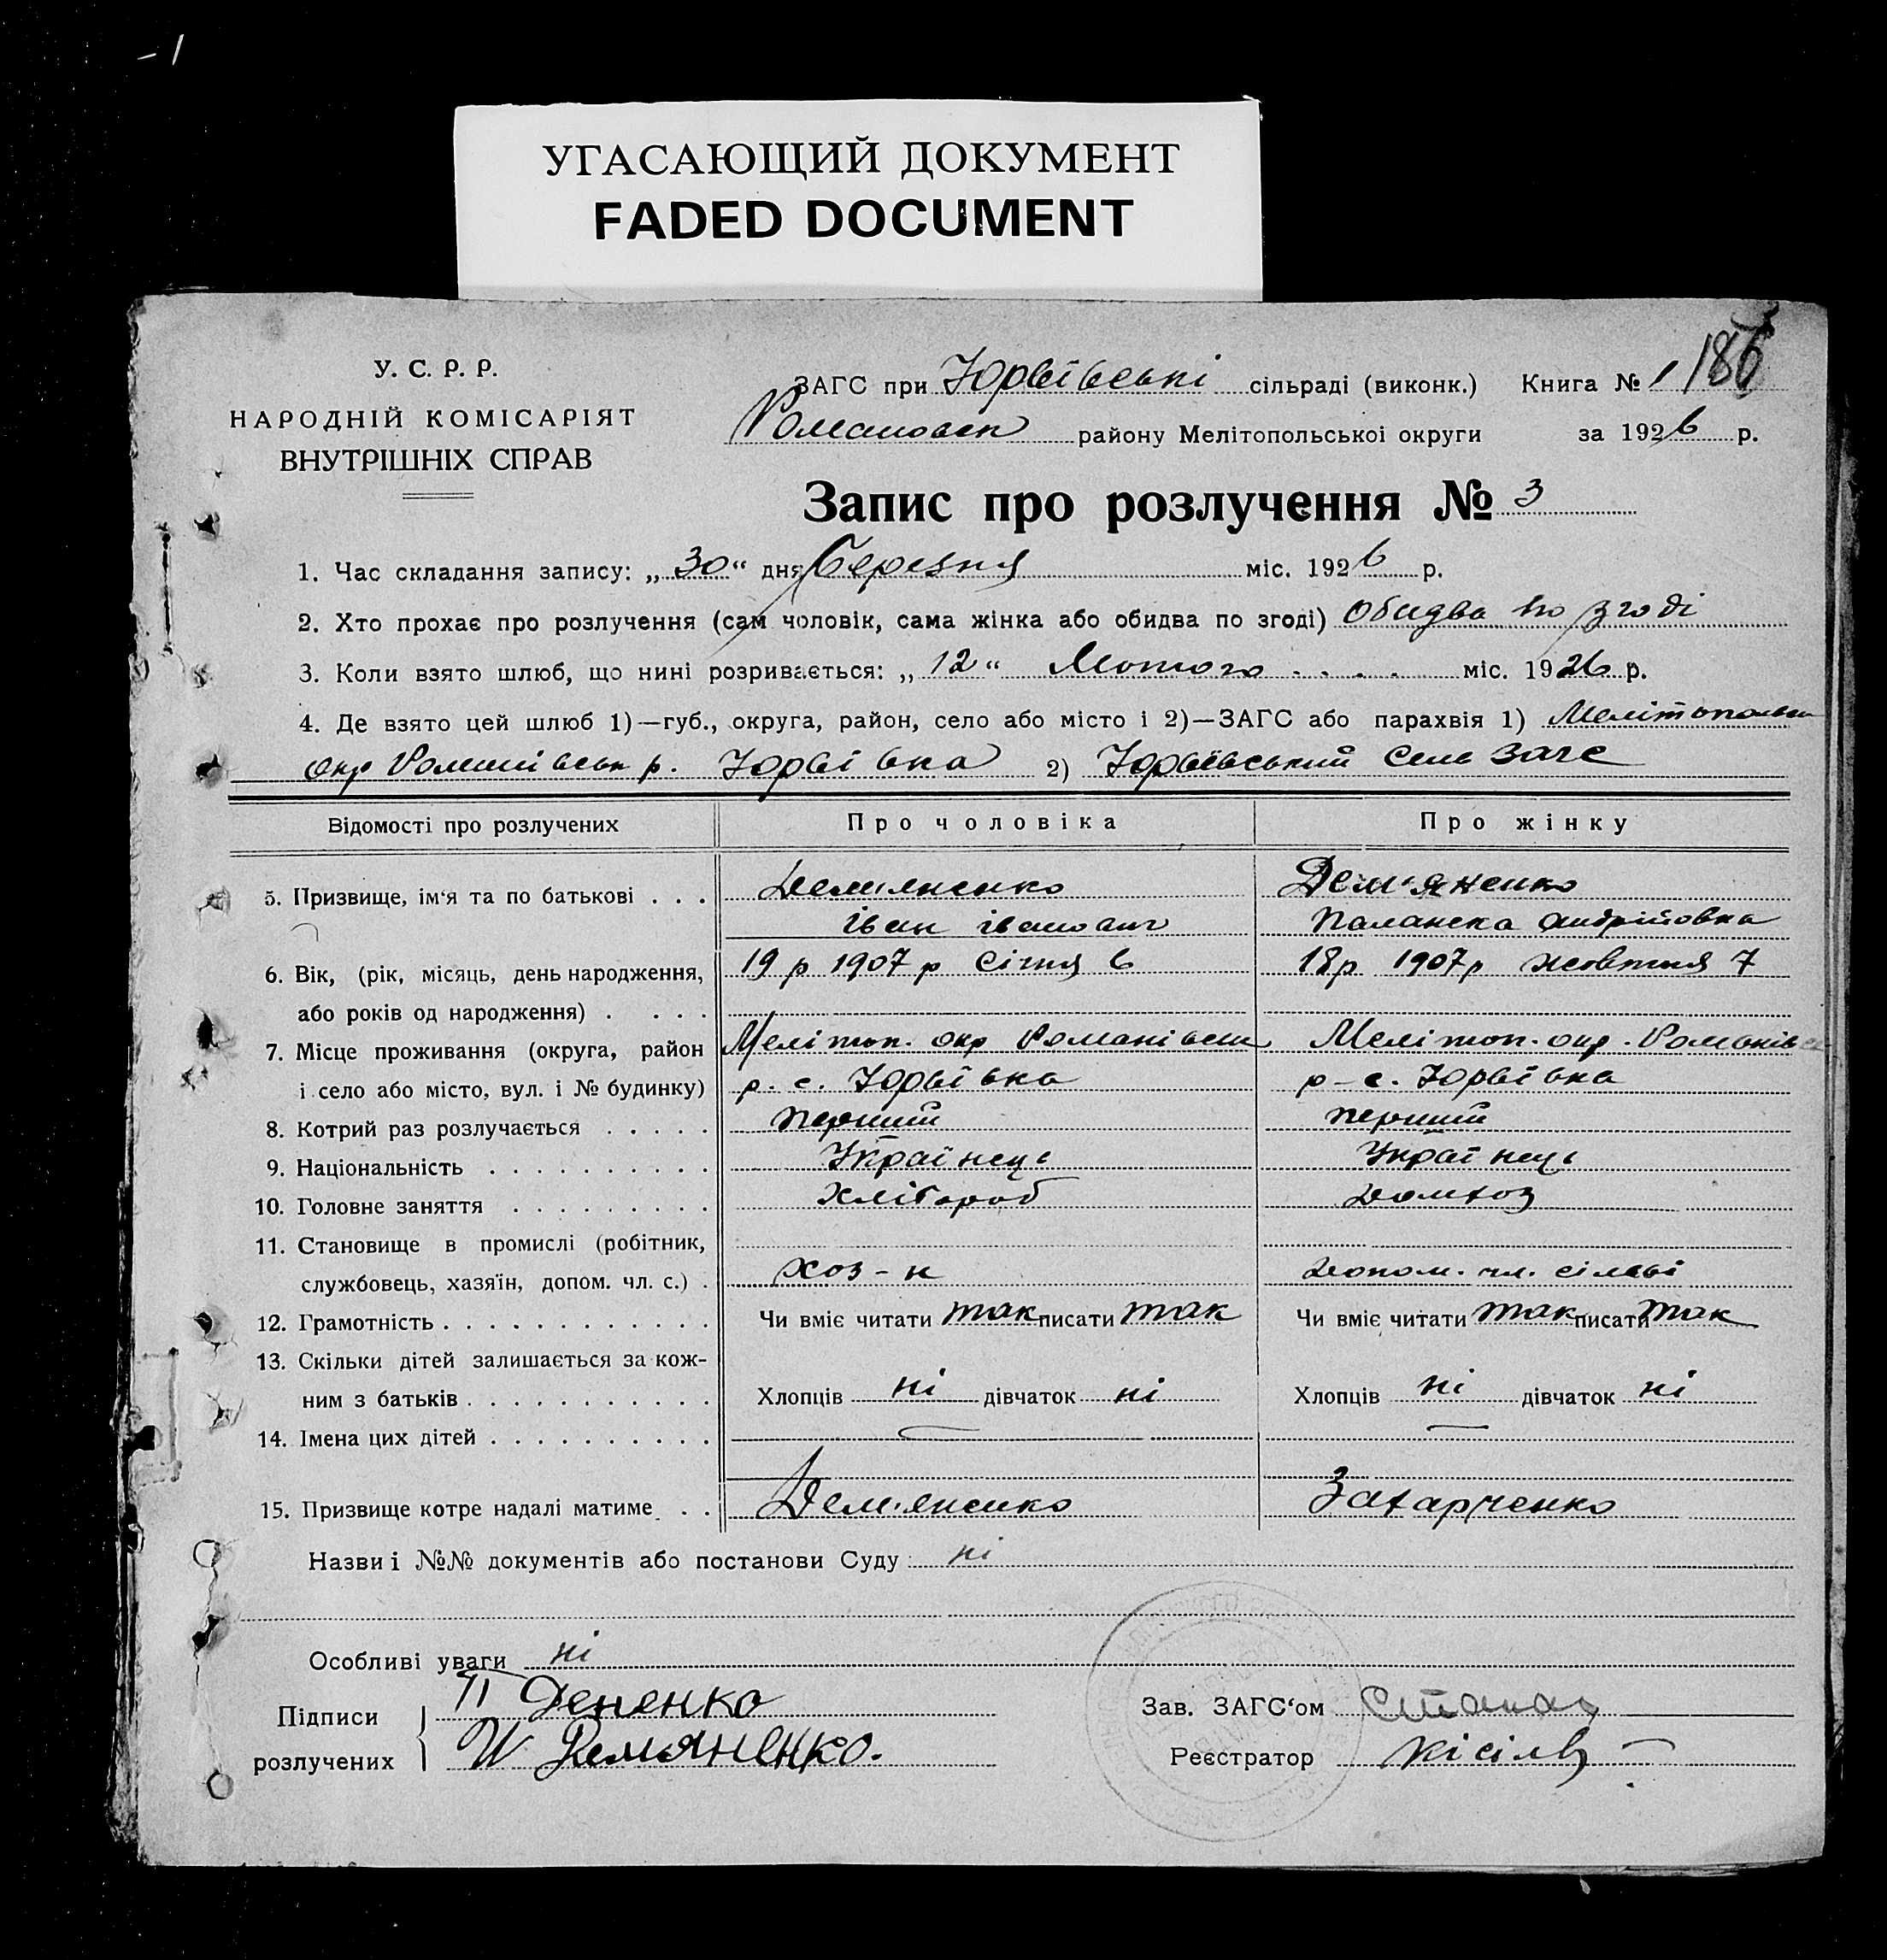 УГАСАЮЩИЙ ДОКУМЕНТ
FADED DOCUMENT
У. С. Р. Р.
НАРОДНІЙ КОМІСАРІЯТ
ВНУТРІШНІХ СПРАВ
ЗАГС при Юрвївські сільраді (виконк.) Книга № 1 186
Романовск району Мелітопольської округи за 1926 р.
Запис про розлучення № 3
1. Час складання запису: „30“ дня Березня міс. 1926 р.
2. Хто прохає про розлучення (сам чоловік, сама жінка або обидва по згоді) Обидва по згоді
3. Коли взято шлюб, що нині розривається: „12“ Лютого міс. 1926 р.
4. Де взято цей шлюб 1)—губ., округа, район, село або місто і 2)—ЗАГС або парахвія 1) Мелітопольск
окр Романівськ р. Юрвївка 2) Юрвївський Сель загс
Відомості про розлучених
Про чоловіка
Про жінку
5. Призвище, ім‘я та по батькові . . . Демьяненко Дем'яненко
іван іванович Палажка Андрійовна
6. Вік, (рік, місяць, день народження, 19 р 1907 р Січня 6 18р 1907р жовтня 7
або років од народження) . . . .
7. Місце проживання (округа, район Мелітоп. окр Романівськ Мелітоп. окр. Романівськ
і село або місто, вул. і № будинку) р. с. Юрвївка р-с. Юрвївка
8. Котрий раз розлучається . . . . . перший перший
9. Національність . . . . . . . . . . Українець Українець
10. Головне заняття . . . . . . . . . Хлібороб Домхоз
11. Становище в промислі (робітник,
службовець, хазяїн, допом. чл. с.) . Хоз-н допом. чл. сімьі
12. Грамотність . . . . . . . . . . . . Чи вміє читати так писати так Чи вміє читати так писати так
13. Скільки дітей залишається за кож-
ним з батьків . . . . . . . . . . . Хлопців ні дівчаток ні Хлопців ні дівчаток ні
14. Імена цих дітей . . . . . . . . . .
15. Призвище котре надалі матиме . . Демьяненко Захарченко
Назви і №№ документів або постанови Суду ні
Особливі уваги ні
Підписи П Дененко Зав. ЗАГС‘ом
розлучених И Демяненко. Реєстратор Кісіль